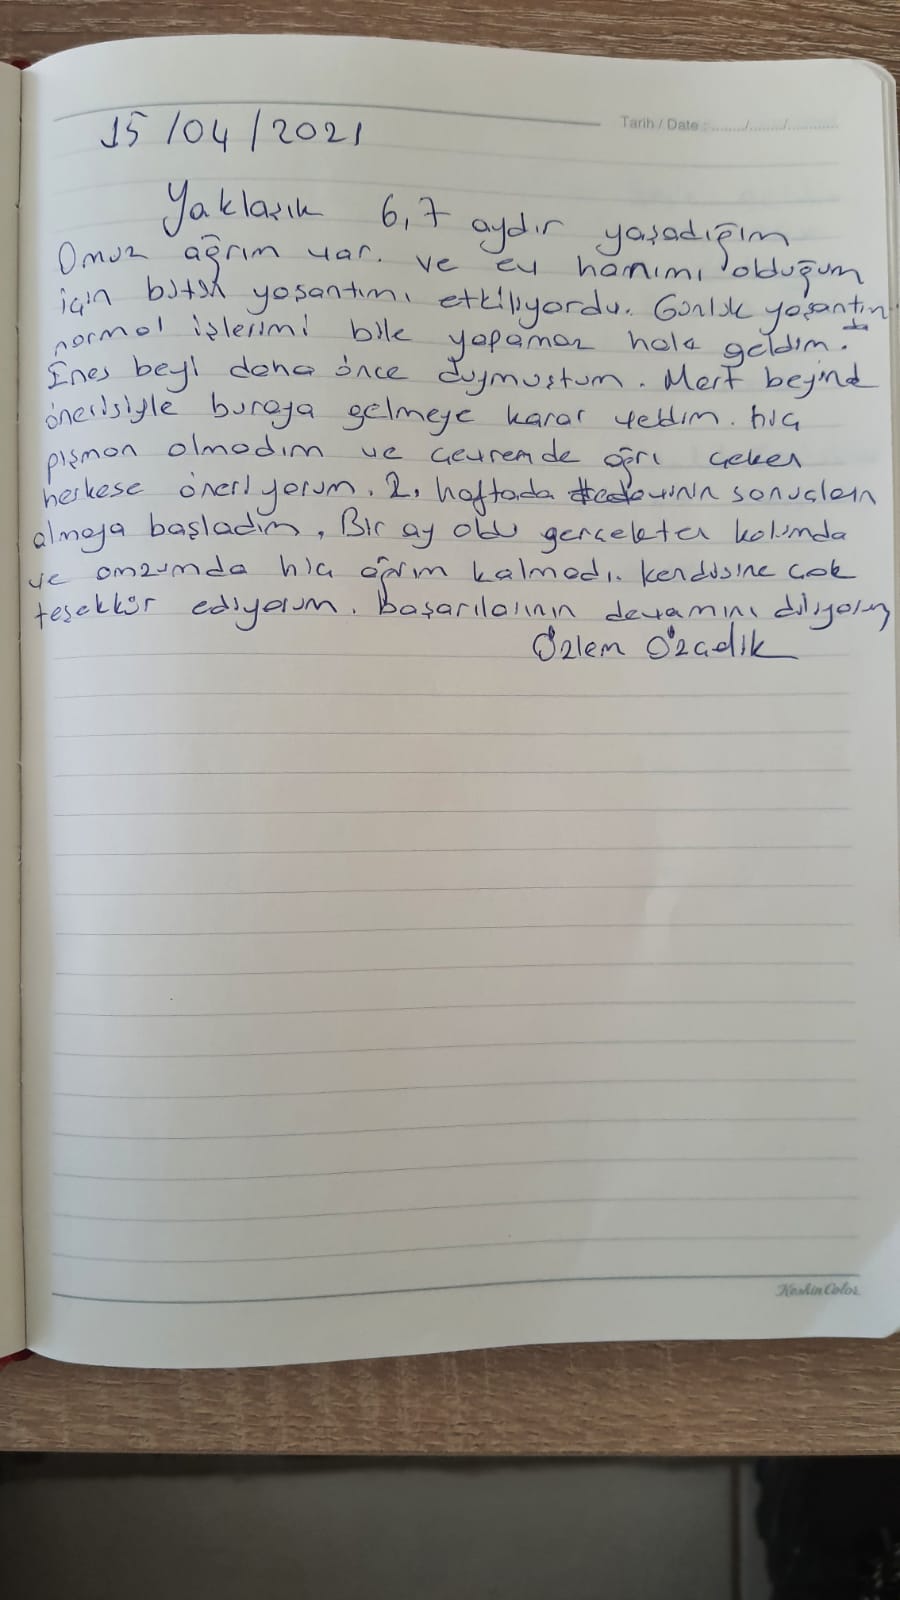 15/04/2021
Tarih / Date :......../......../............
Yaklaşık 6,7 aydır yaşadığım
Omuz ağrım var. ve ev hanımı olduğum
için bütün yaşantımı etkiliyordu. Günlük yaşantım
normal işlerimi bile yapamaz hale geldim.
Enes beyi daha önce duymuştum. Mert beyinde
önerisiyle buraya gelmeye karar verdim. hiç
pişman olmadım ve çevremde ağrı çeken
herkese öneriyorum. 2. haftada tedavinin sonuçların
almaya başladım. Bir ay oldu gerçekten kolumda
ve omzumda hiç ağrım kalmadı. kendisine çok
teşekkür ediyorum. başarılarının devamını diliyorum
Özlem Özçelik
KeskinColor